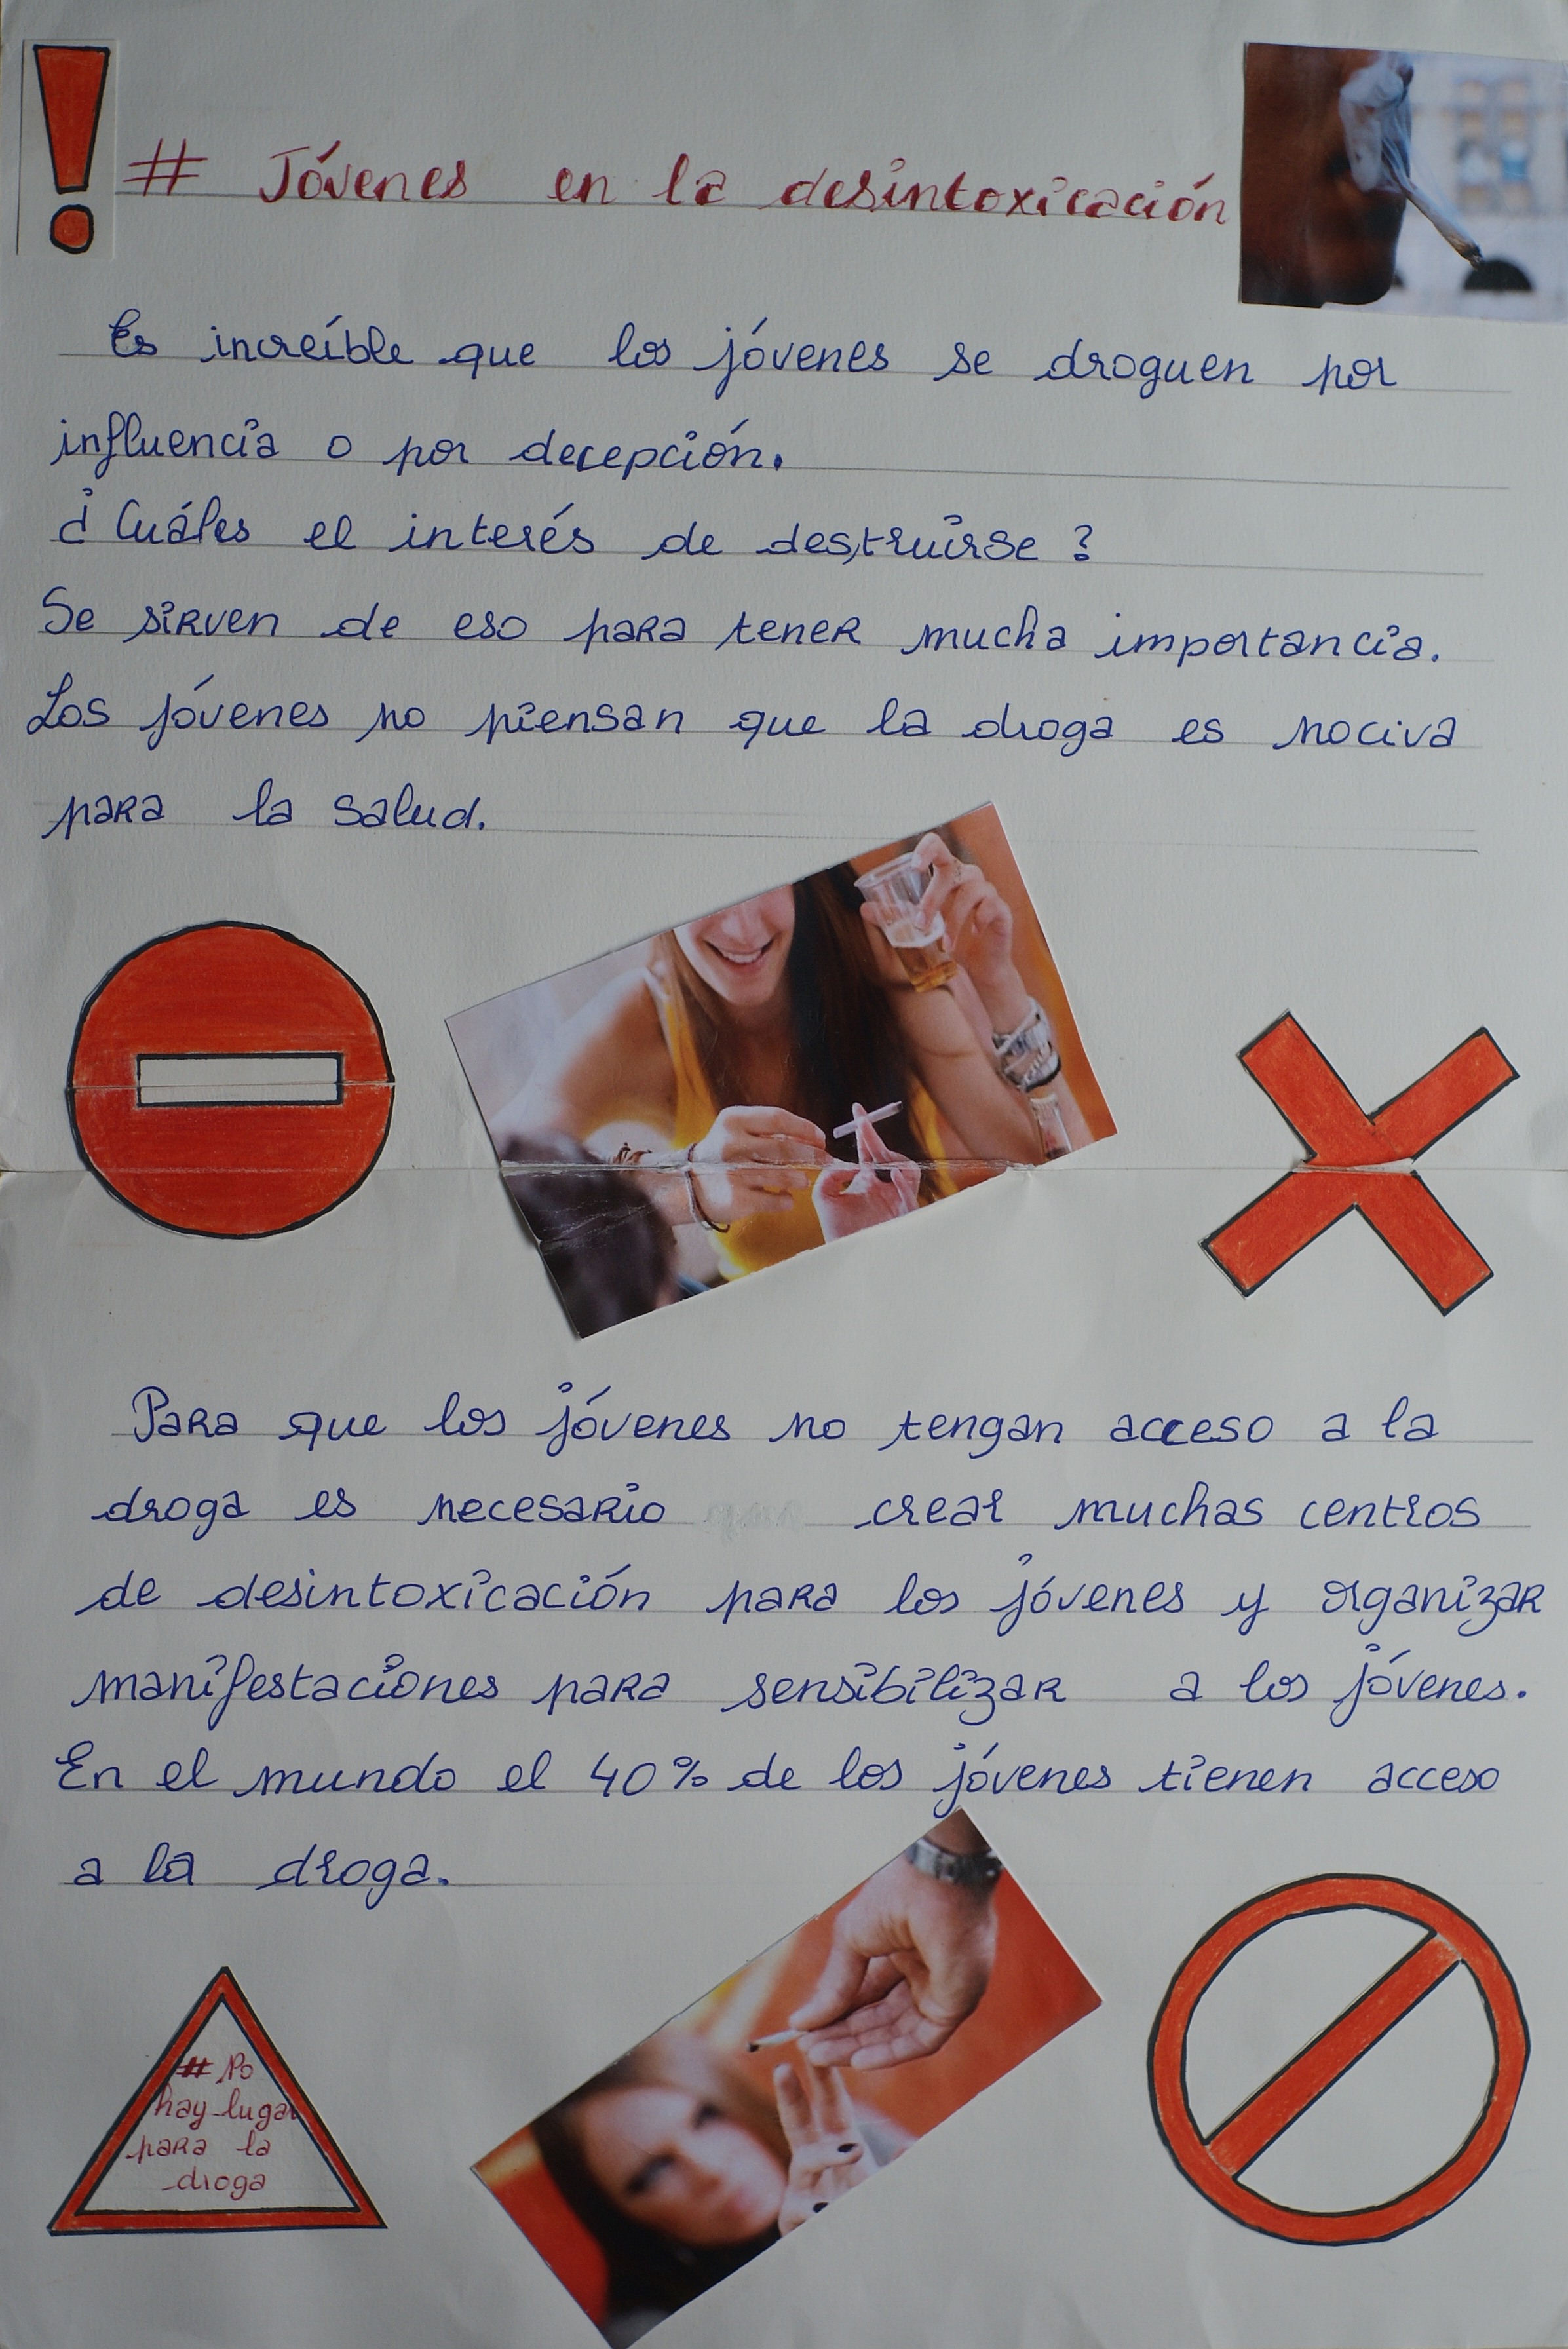 # Jóvenes en la desintoxicación
Es increíble que los jóvenes se droguen por
influencia o por decepción.
¿Cuáles el interés de destruirse?
Se sirven de eso para tener mucha importancia.
Los jóvenes no piensan que la droga es nociva
para la salud.
Para que los jóvenes no tengan acceso a la
droga es necesario crear muchas centros
de desintoxicación para los jóvenes y organizar
manifestaciones para sensibilizar a los jóvenes.
En el mundo el 40% de los jóvenes tienen acceso
a la droga.
# No
hay lugar
para la
droga